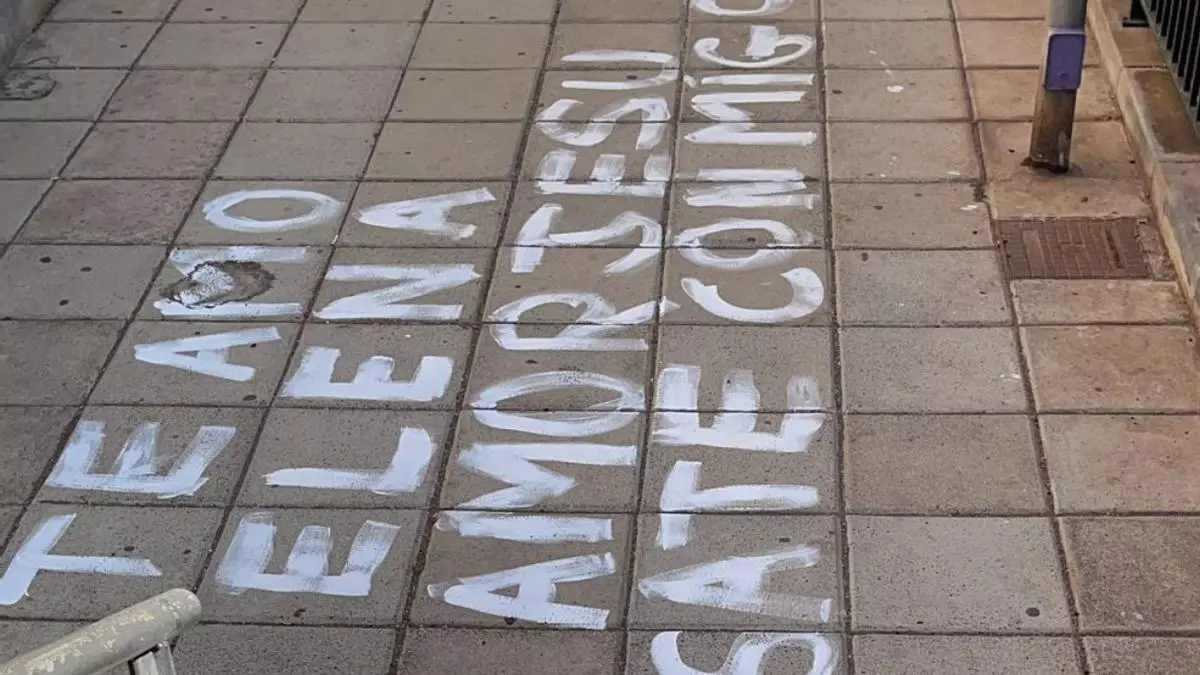 TE AMO
ELENA
AMOR
SATE CONMIGO